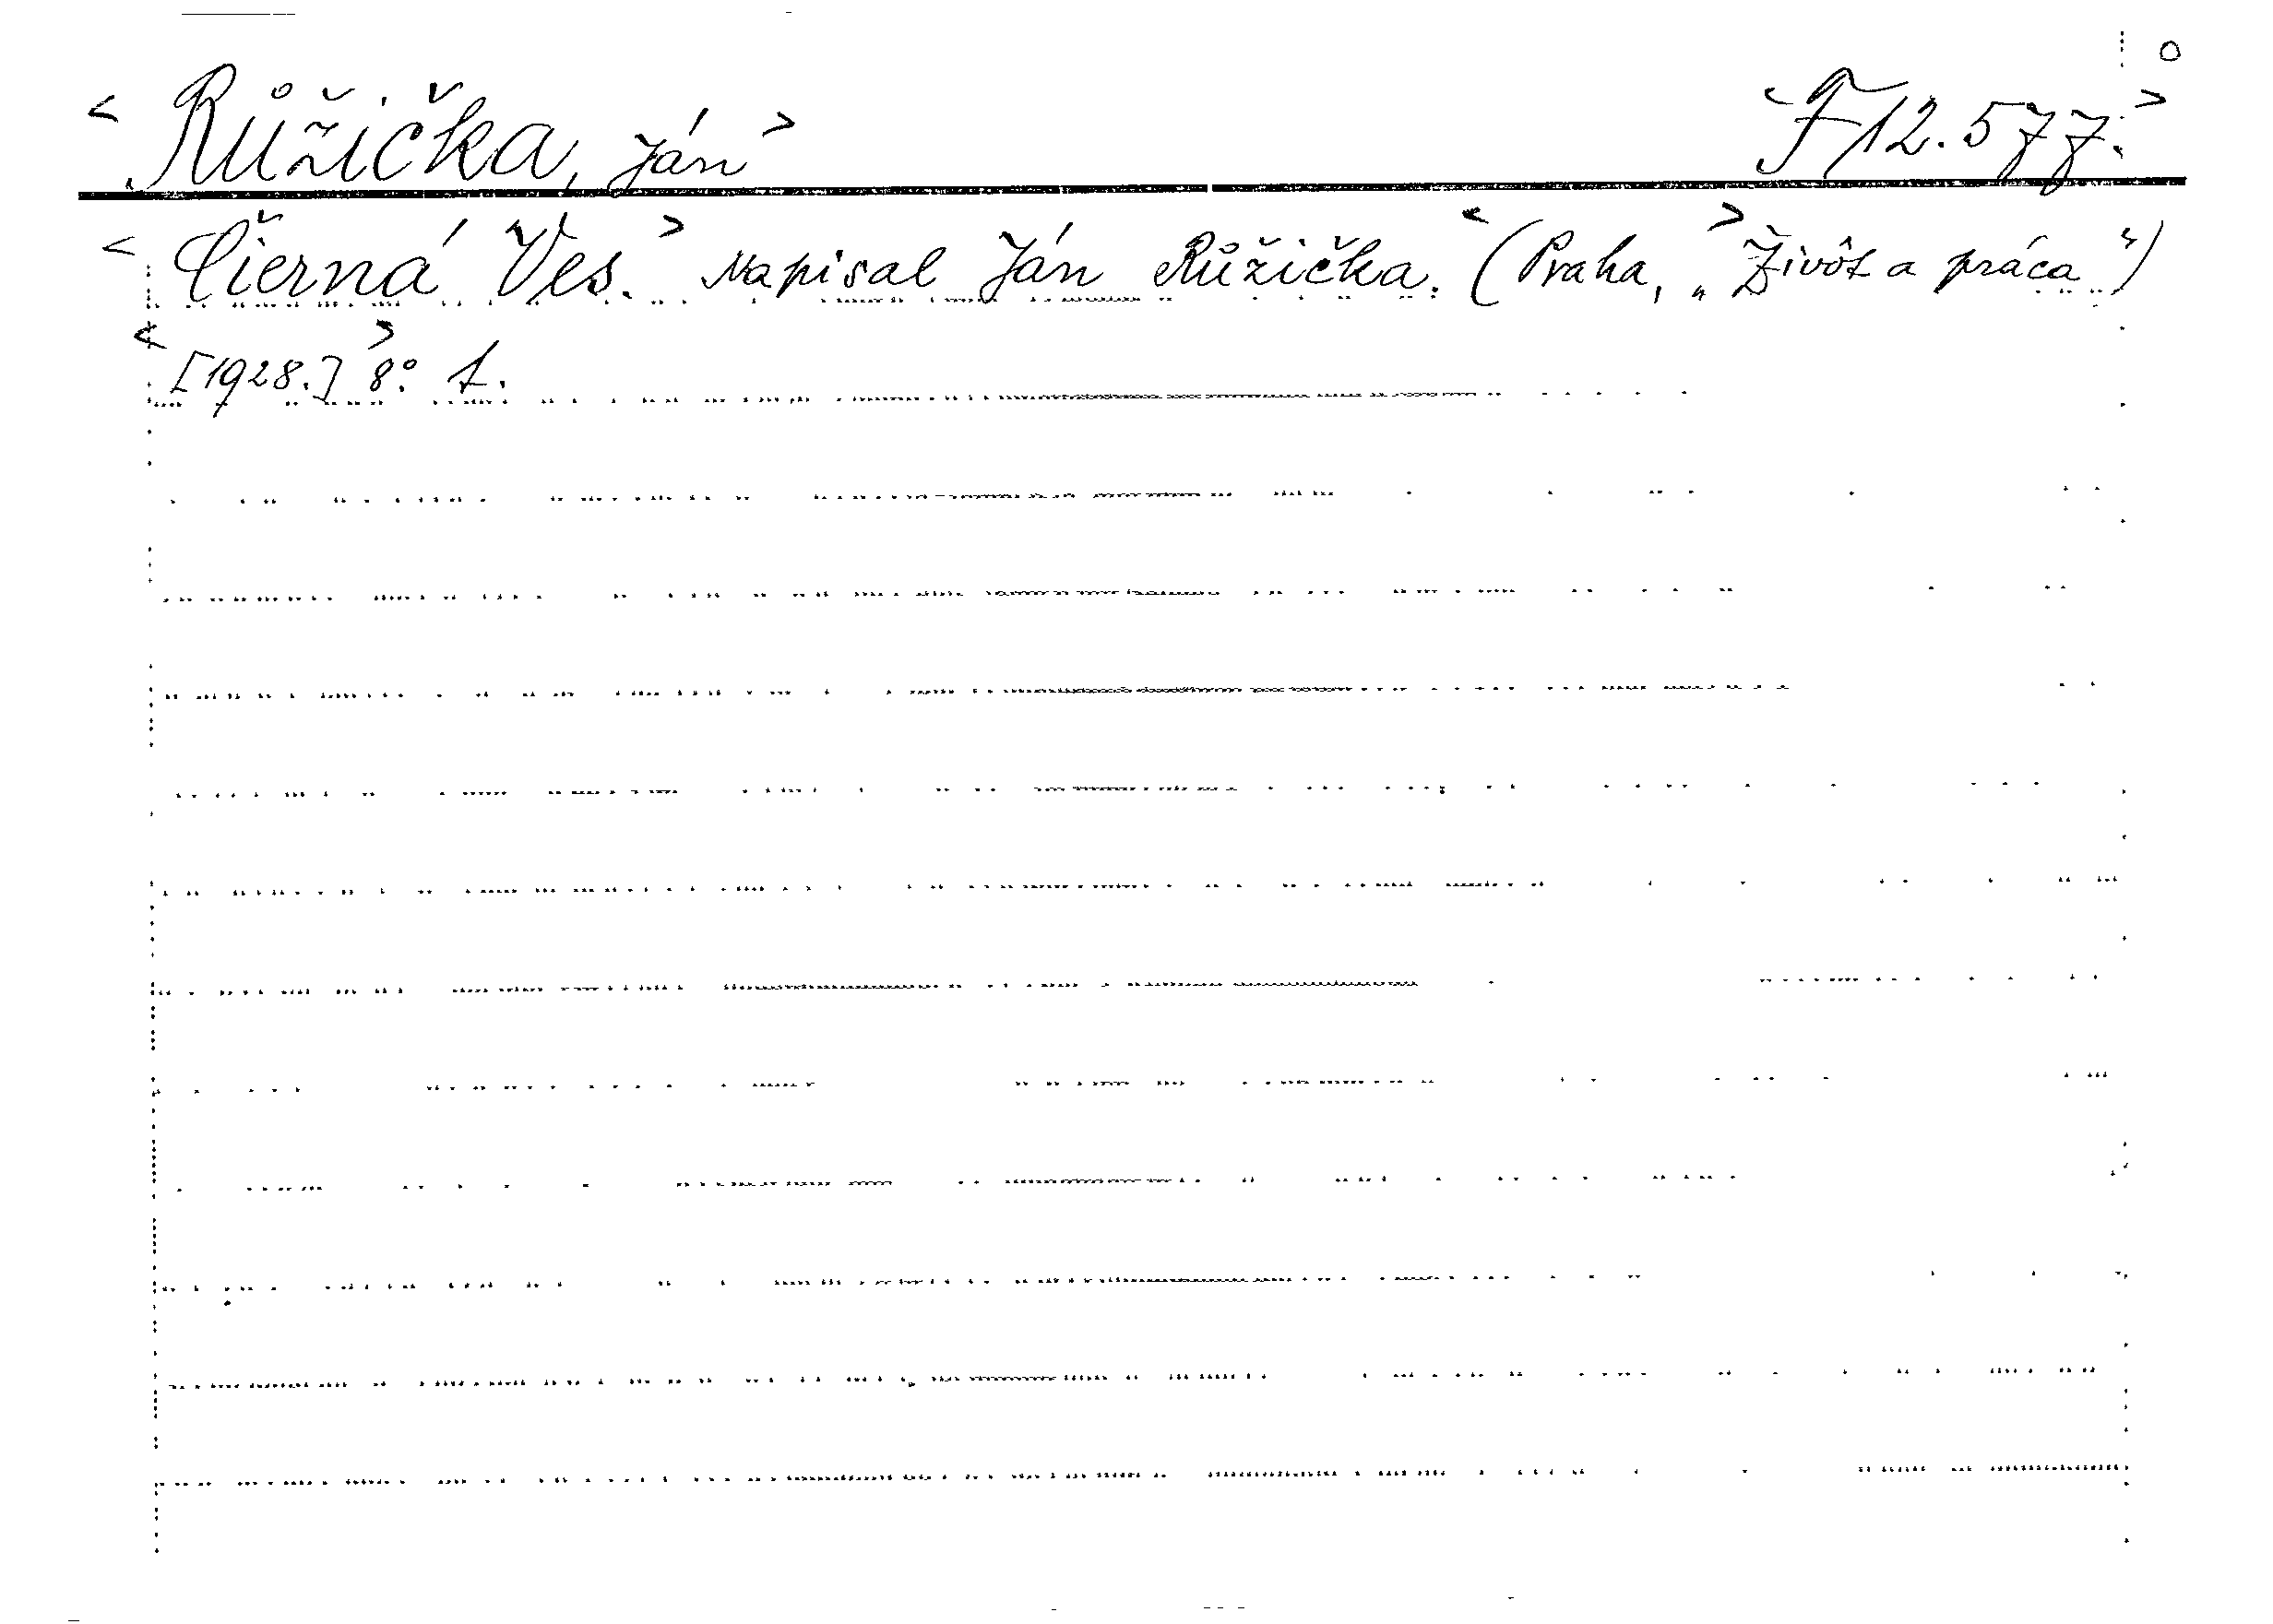 < Růžička, Ján > < F 12.577. >
< Čierná Ves. > Napisal Ján Růžička. < (Praha, > „Živôt a práca“)
< [1928.] > 8° 1.